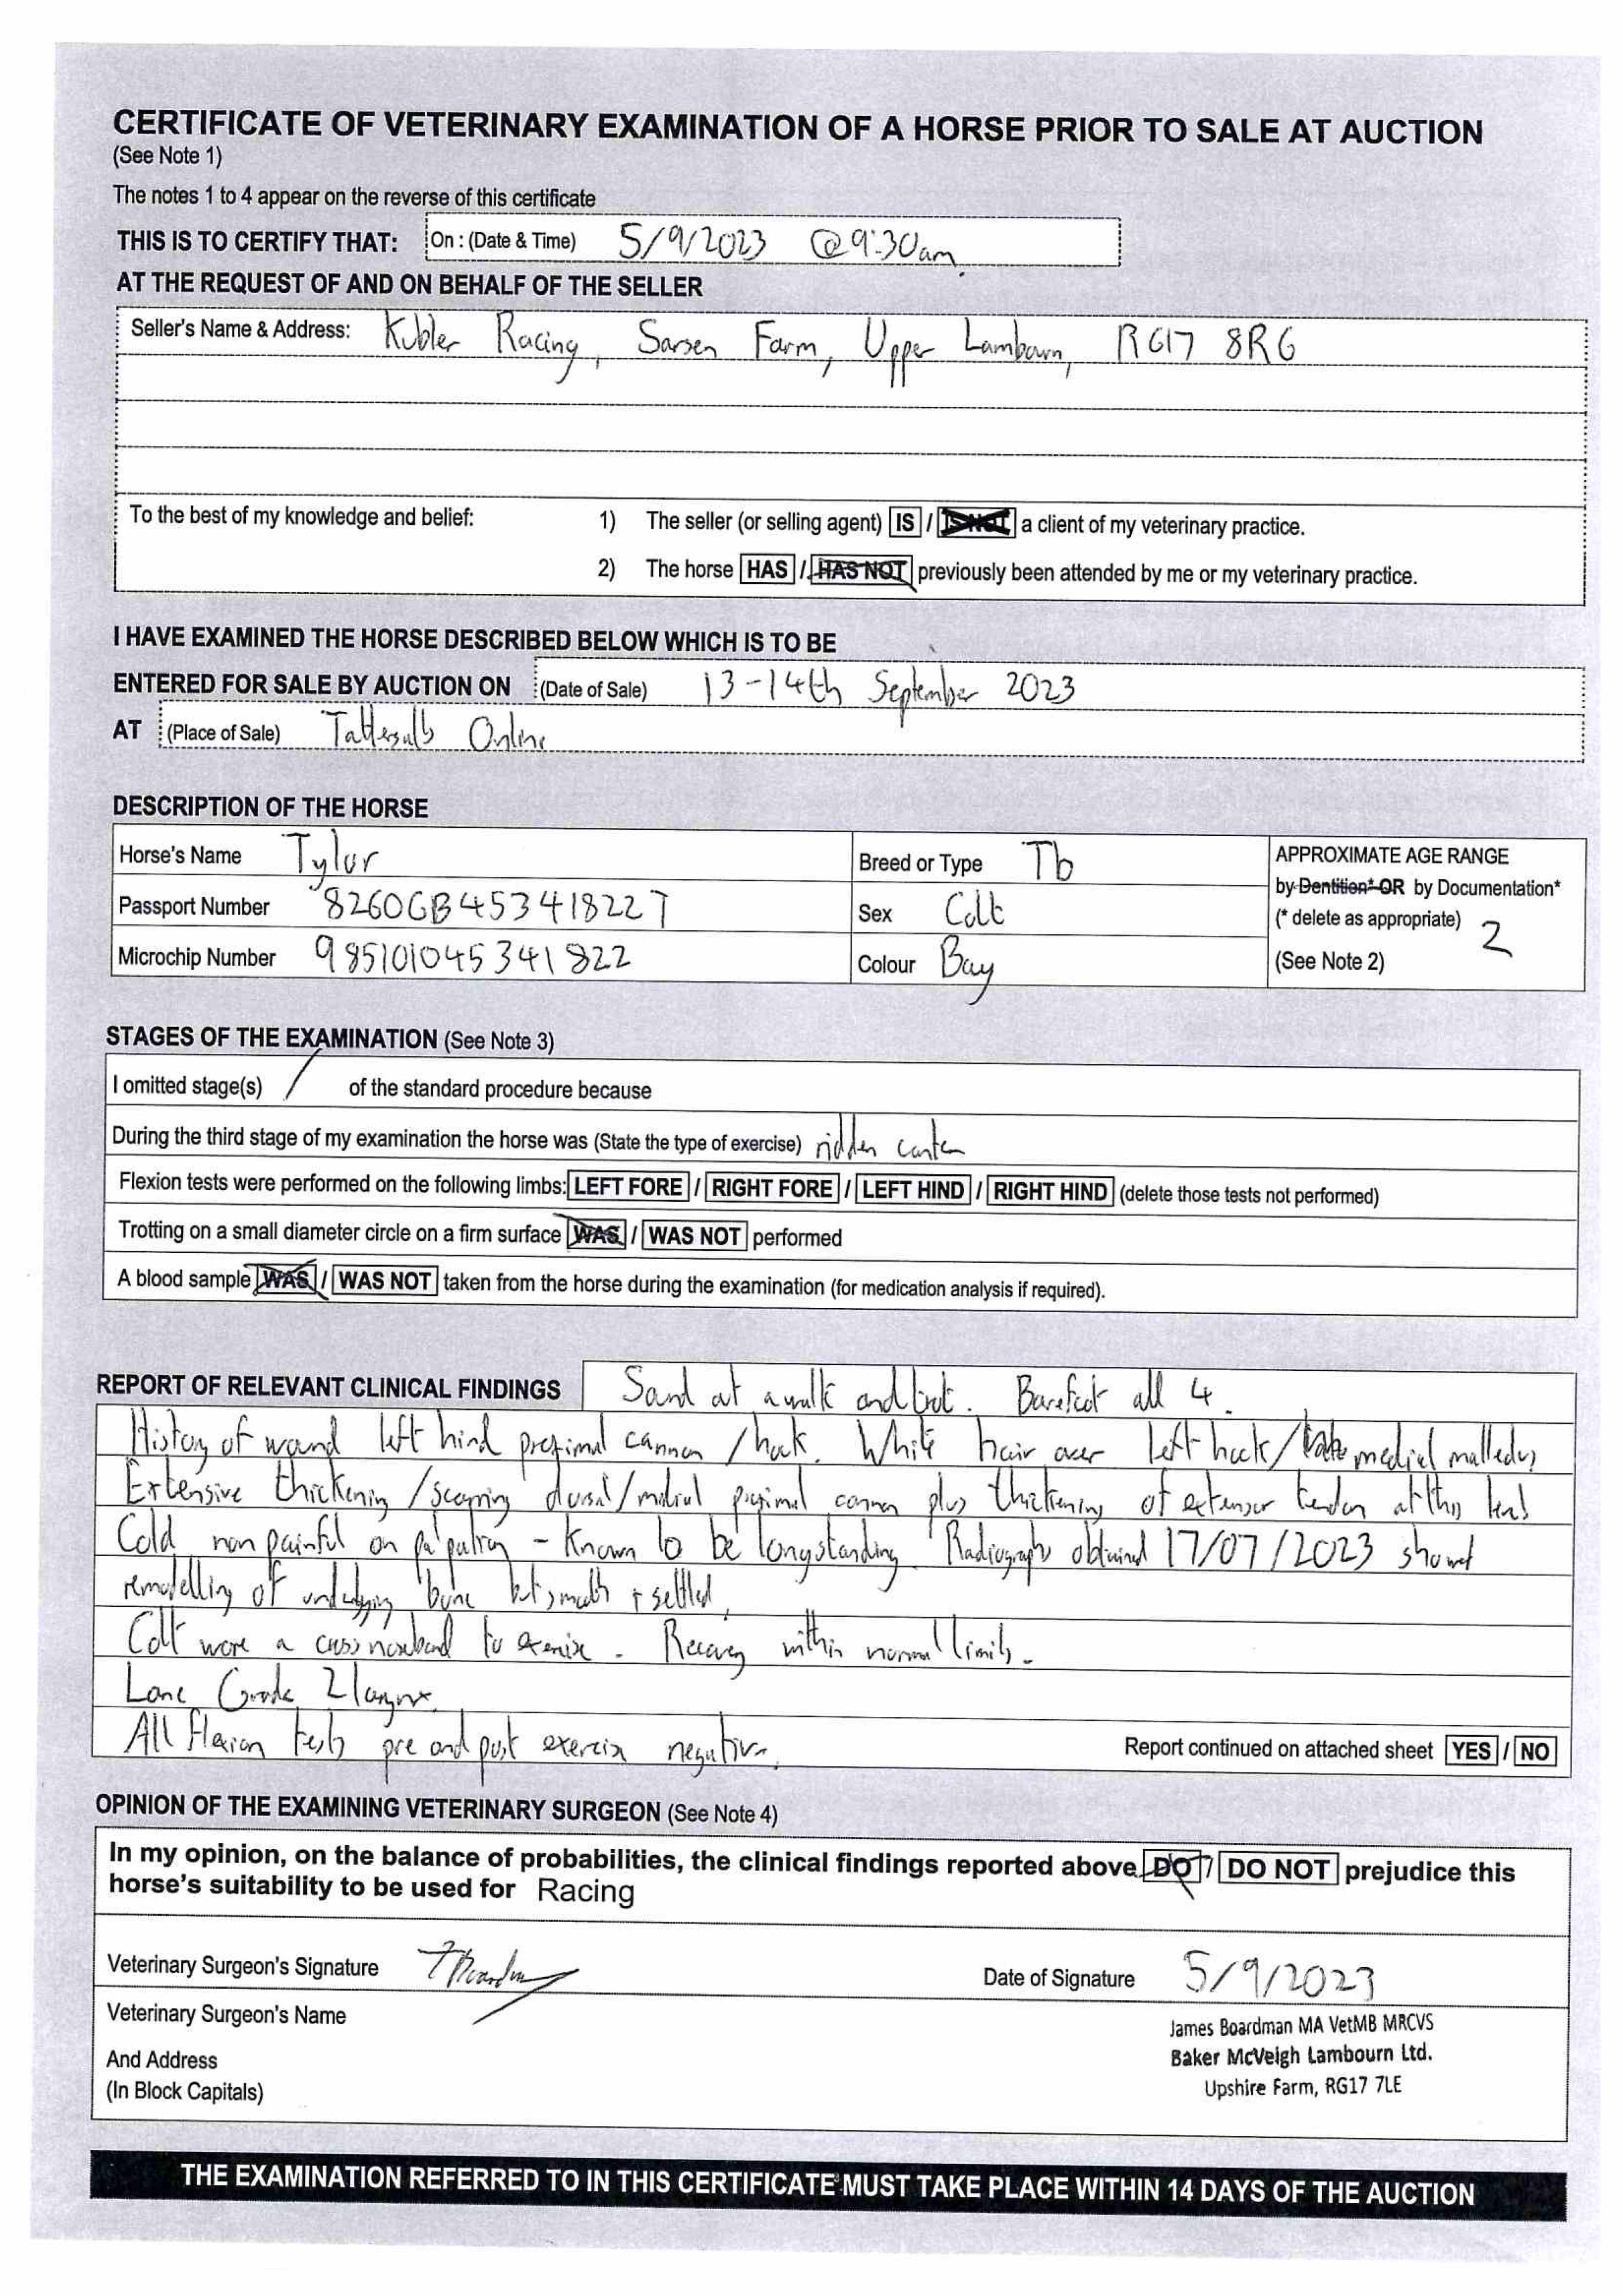 CERTIFICATE OF VETERINARY EXAMINATION OF A HORSE PRIOR TO SALE AT AUCTION
(See Note 1)
The notes 1 to 4 appear on the reverse of this certificate
THIS IS TO CERTIFY THAT: On : (Date & Time) 5/9/2023 @ 9:30am
AT THE REQUEST OF AND ON BEHALF OF THE SELLER
Seller's Name & Address: Kubler Racing, Sarsen Farm, Upper Lambourn, RG17 8RG
To the best of my knowledge and belief: 1) The seller (or selling agent) IS / IS NOT a client of my veterinary practice.
2) The horse HAS / HAS NOT previously been attended by me or my veterinary practice.
I HAVE EXAMINED THE HORSE DESCRIBED BELOW WHICH IS TO BE
ENTERED FOR SALE BY AUCTION ON (Date of Sale) 13-14th September 2023
AT (Place of Sale) Tattersalls Online
DESCRIPTION OF THE HORSE
Horse's Name Tylur Breed or Type Tb APPROXIMATE AGE RANGE
by Dentition* OR by Documentation*
Passport Number 8260GB45341822T Sex Colt (* delete as appropriate) 2
Microchip Number 985101045341822 Colour Bay (See Note 2)
STAGES OF THE EXAMINATION (See Note 3)
I omitted stage(s) / of the standard procedure because
During the third stage of my examination the horse was (State the type of exercise) ridden canter
Flexion tests were performed on the following limbs: LEFT FORE / RIGHT FORE / LEFT HIND / RIGHT HIND (delete those tests not performed)
Trotting on a small diameter circle on a firm surface WAS / WAS NOT performed
A blood sample WAS / WAS NOT taken from the horse during the examination (for medication analysis if required).
REPORT OF RELEVANT CLINICAL FINDINGS Sound at a walk and trot. Barefoot all 4.
History of wound left hind proximal cannon / hock. White hair over left hock / medial malleolus
Extensive thickening / scarring dorsal / medial proximal cannon plus thickening of extensor tendon at this level
Cold non painful on palpation - Known to be longstanding. Radiographs obtained 17/07/2023 showed
remodelling of underlying bone but smooth + settled.
Colt wore a cross noseband to exercise. Recovery within normal limits.
Lane Grade 2 larynx.
All flexion tests pre and post exercise negative. Report continued on attached sheet YES / NO
OPINION OF THE EXAMINING VETERINARY SURGEON (See Note 4)
In my opinion, on the balance of probabilities, the clinical findings reported above DO / DO NOT prejudice this
horse's suitability to be used for Racing
Veterinary Surgeon's Signature Date of Signature 5/9/2023
Veterinary Surgeon's Name James Boardman MA VetMB MRCVS
And Address Baker McVeigh Lambourn Ltd.
(In Block Capitals) Upshire Farm, RG17 7LE
THE EXAMINATION REFERRED TO IN THIS CERTIFICATE MUST TAKE PLACE WITHIN 14 DAYS OF THE AUCTION